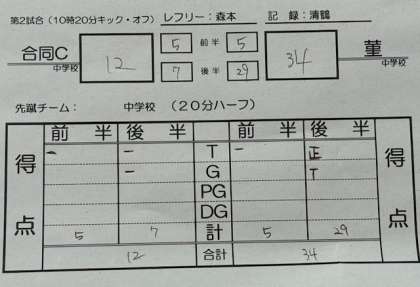 第2試合（10時20分キック・オフ） レフリー：森本 記 録：清鶴
合同C 中学校 12 5 前半 5 34 菫 中学校
7 後半 29
先蹴チーム： 中学校 （20分ハーフ）
前 半 後 半 前 半 後 半
得点 得点
一 一 T 一 正
一 G T
PG
DG
5 7 計 5 29
12 合計 34